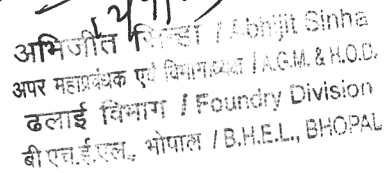 अभिजीत सिन्हा / Abhijit Sinha
अपर महाप्रबंधक एवं विभागाध्यक्ष / A.G.M. & H.O.D.
ढलाई विभाग / Foundry Division
बी.एच.ई.एल., भोपाल / B.H.E.L., BHOPAL